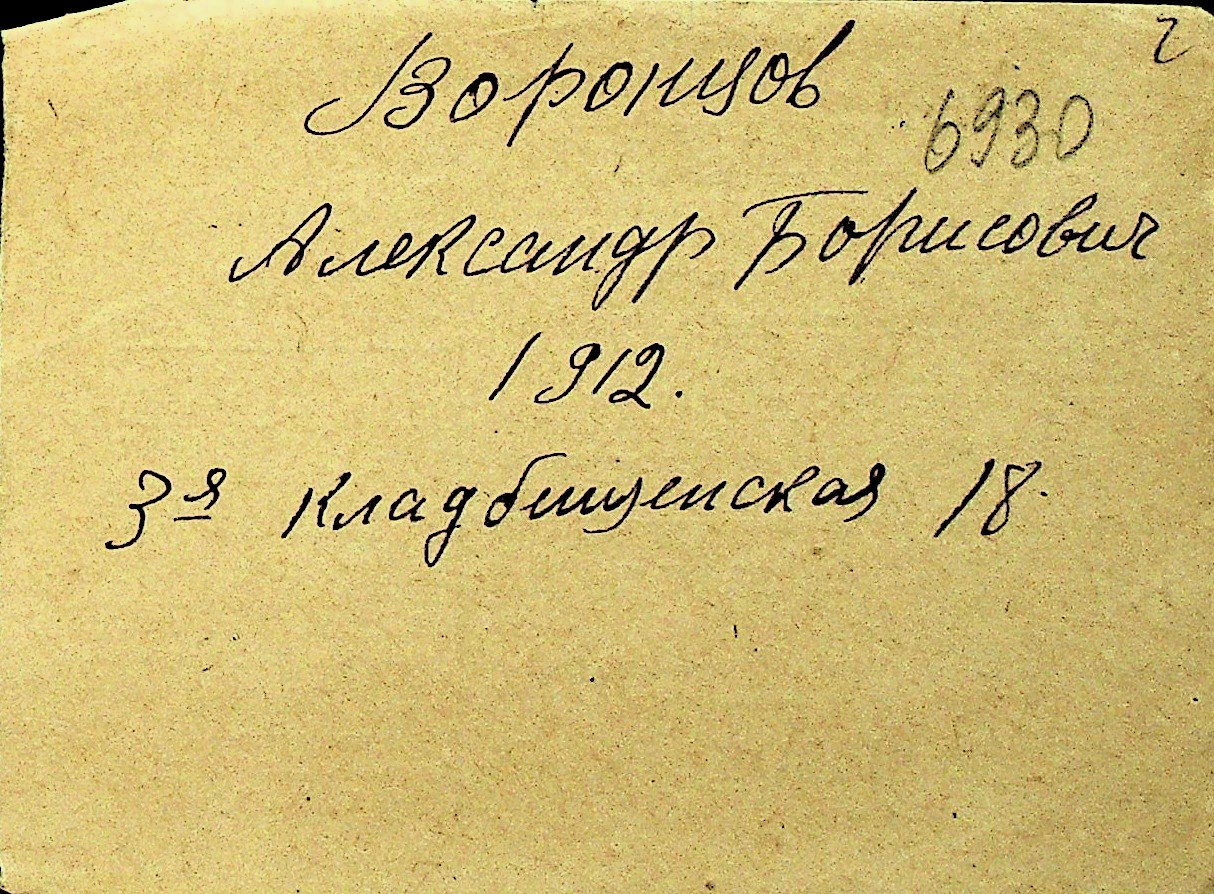 2
Воронцов
6930
Александр Борисович
1912.
3я Кладбищенская 18.